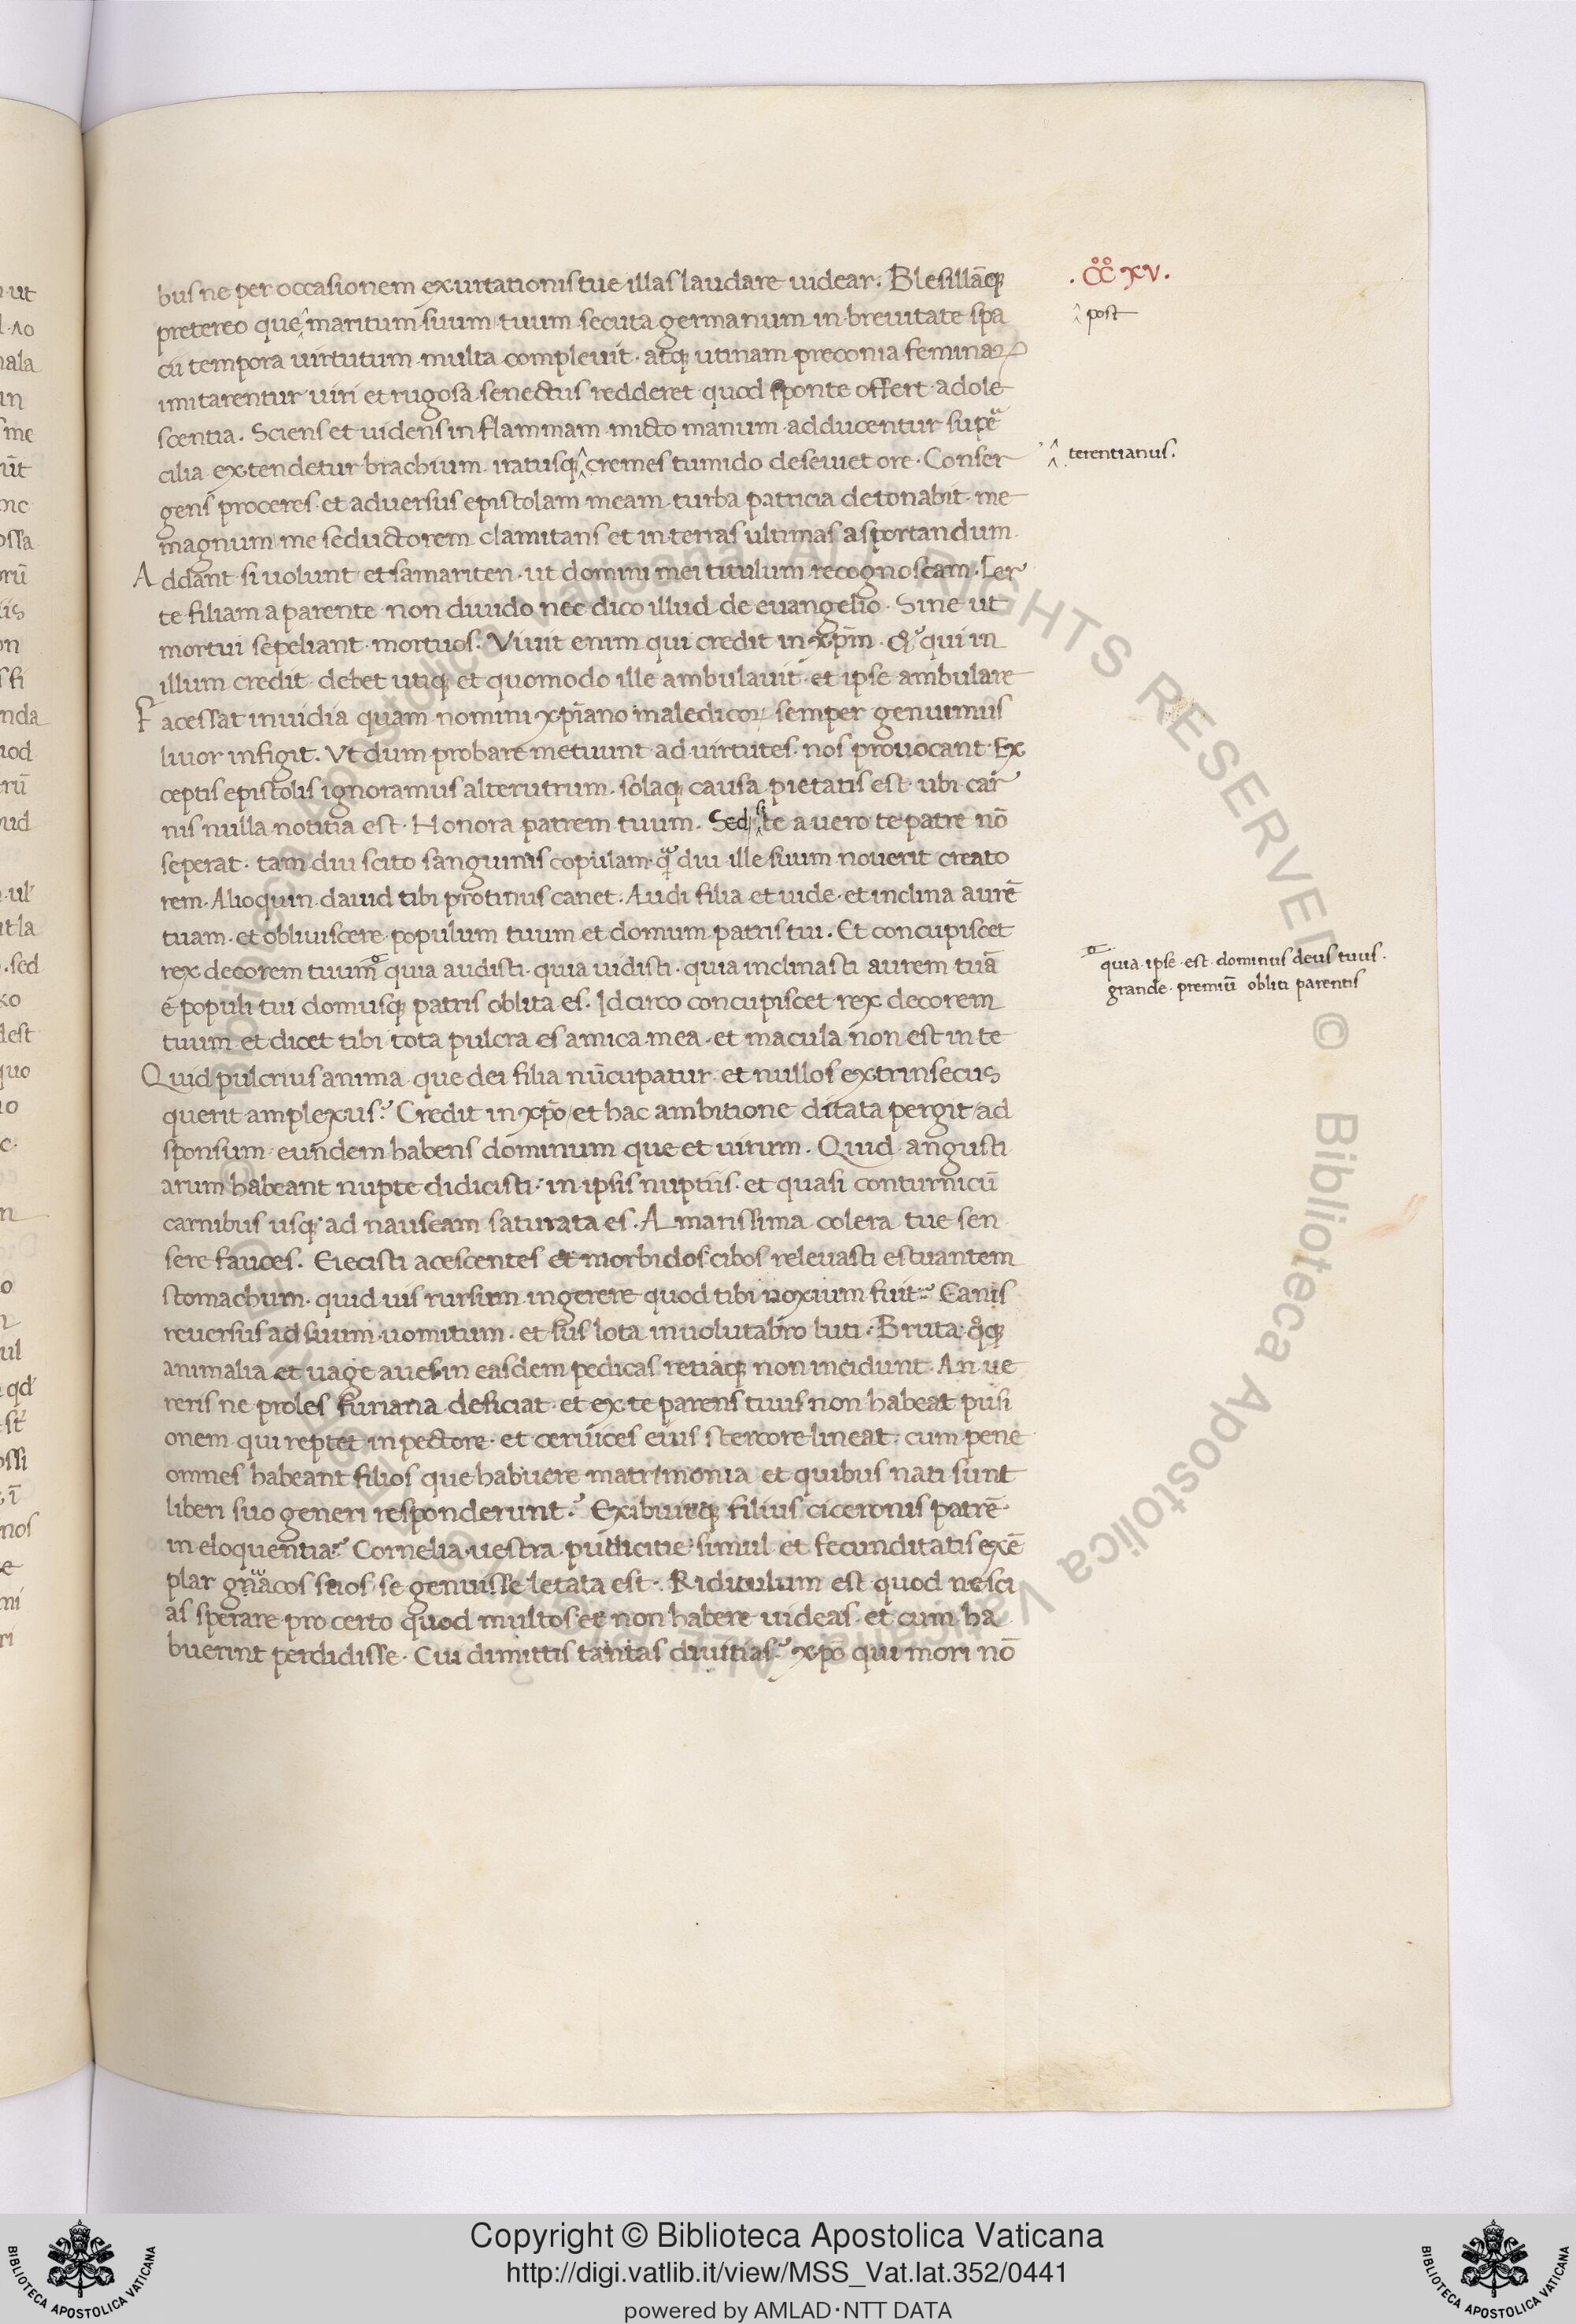 bus ne per occasionem exurtationis tue illas laudare uidear. Blesillāq;
pretereo que maritum suum tuum secuta germanum in breuitate spa
cii tempora uirtutum multa compleuit. atq; utinam preconia feminaꝝ
imitarentur uiri et rugosa senectus redderet quod sponte offert adole
scentia. Sciens et uidens in flammam micto manum adducentur supe
cilia extendetur brachium. iratusq; cremes tumido deseuiet ore. Conser
gens proceres et aduersus epistolam meam turba patricia detonabit. me
magnum me seductorem clamitans et in terras ultimas asportandum.
Addant si uolunt et samariten. ut domini mei titulum recognoscam. Cer
te filiam a parente non diuido nec dico illud de euangelio. Sine ut
mortui sepeliant mortuos. Viuit enim qui credit in xp̄m. & qui in
illum credit debet utiq; et quomodo ille ambulauit et ipse ambulare
Facessat inuidia quam nomini xp̄iano maledicoꝝ semper genuimus
liuor infigit. Vt dum probare metuunt ad uirtutes nos prouocant. Ex
ceptis epistolis ignoramus alterutrum. solaq; causa pietatis est ubi car
nis nulla notitia est. Honora patrem tuum. Sed si te a uero te patre nō
seperat. tam diu scito sanguinis copulam. qᵃdiu ille suum nouerit creato
rem. Alioquin dauid tibi protinus canet. Audi filia et uide. et inclina aurē
tuam. et obliuiscere populum tuum et domum patris tui. Et concupiscet
rex decorem tuum quia audisti. quia uidisti. quia inclinasti aurem tuā
é populi tui domusq; patris oblita es. Idcirco concupiscet rex decorem
tuum et dicet tibi tota pulcra es amica mea. et macula non est in te
Quid pulcrius anima que dei filia nūcupatur et nullos extrinsecus
querit amplexus? Credit in xp̄o / et hac ambitione ditata pergit ad
sponsum eundem habens dominum que et uirum. Quid angusti
arum habeant nupte didicisti in ipsis nuptiis. et quasi conturnicū
carnibus usq; ad nauseam saturata es. Amarissima colera tue sen
sere fauces. Eiecisti acescentes et morbidos cibos releuasti estuantem
stomachum. quid uis rursum ingerere quod tibi noxium fuit? Canis
reuersus ad suum uomitum. et sus lota in uolutabro luti. Bruta q°q;
animalia et uage aues in easdem pedicas retiaq; non incidunt. An ue
reris ne proles furiana deficiat. et ex te parens tuus non habeat pusi
onem qui reptet in pectore et ceruices eius stercore lineat. cum pene
omnes habeant filios que habuere matrimonia et quibus nati sunt
liberi suo generi responderunt? Exibuitq; filius ciceronis patrē
in eloquentia? Cornelia uestra pudicitie simul et fecunditatis exē
plar gͣcos suos se genuisse letata est. Ridiculum est quod nesci
as sperare pro certo quod multos et non habere uideas et cum ha
buerint perdidisse. Cui dimittis tantas diuitias? xp̄o qui mori nō
.CC XV.
post
terentianus.
quia ipse est dominus deus tuus.
grande premiū obliti parentis
Copyright © Biblioteca Apostolica Vaticana
http://digi.vatlib.it/view/MSS_Vat.lat.352/0441
powered by AMLAD·NTT DATA